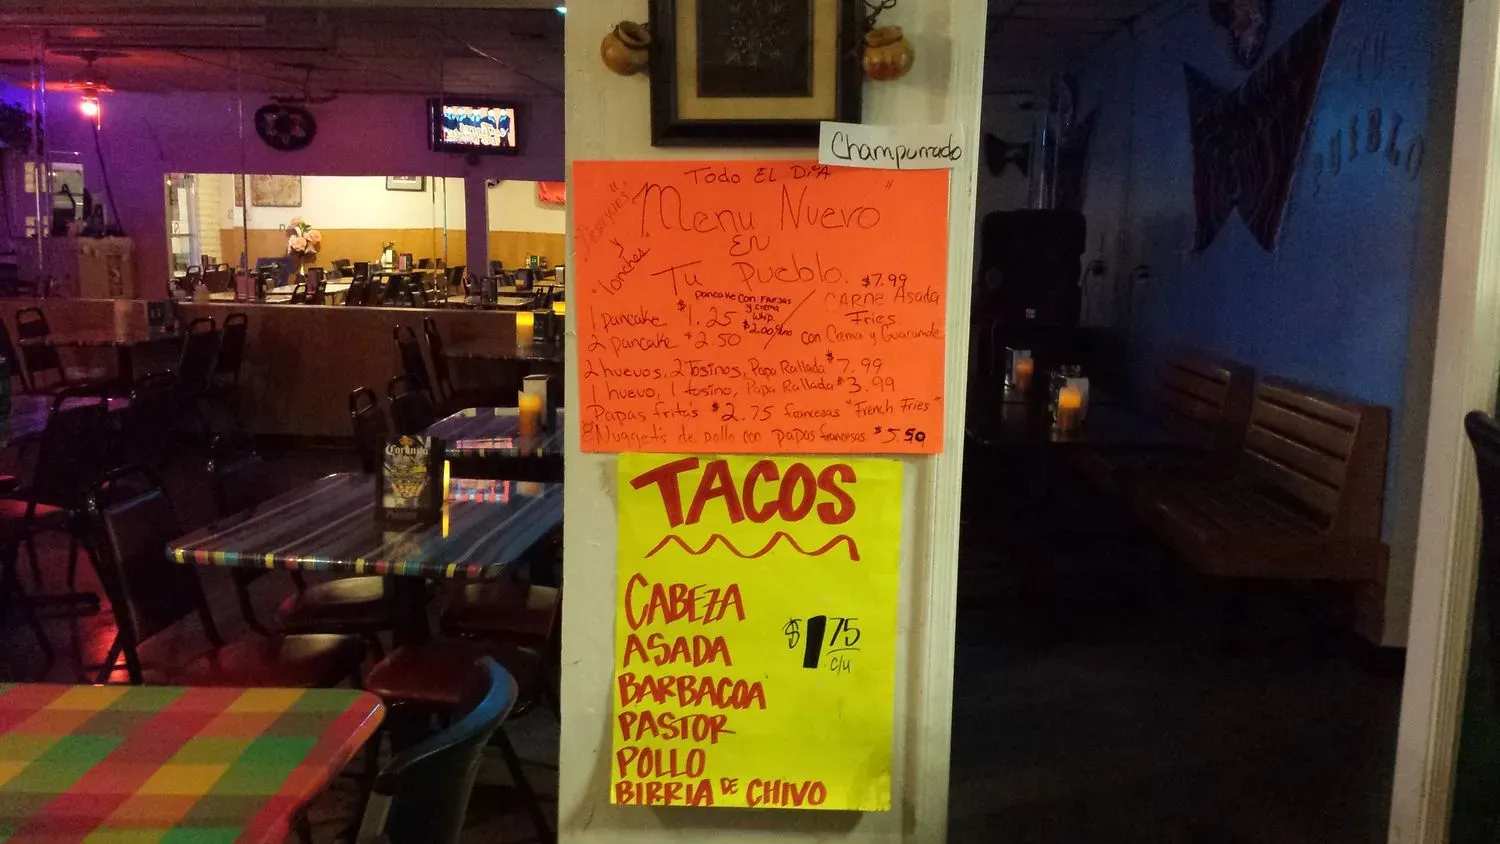 Champurrado
Todo EL DiA
"Desayunos"
y
"lonches"
"Menu Nuevo"
EN
Tu Pueblo.
1 pancake $1.25
2 pancake $2.50
pancake con Fresas
y crema
whip.
$2.00
$7.99
CARNE Asada
Fries
con Crema y Guacamole
2 huevos, 2 Tosinos, Papa Rallada $7.99
1 huevo, 1 tosino, Papa Rallada $3.99
Papas fritas $2.75 francesas "French Fries"
Nuggets de pollo con papas francesas $5.50
TACOS
CABEZA
ASADA
BARBACOA
PASTOR
POLLO
BIRRIA DE CHIVO
$1 75
c/u
TU
PUEBLO
Corona